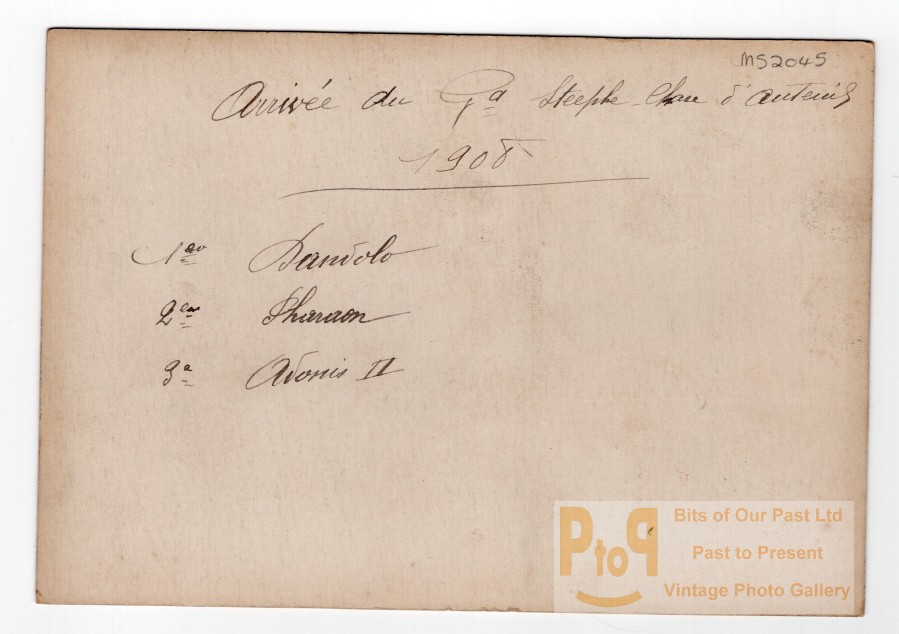 MS2045
Arrivée du Gd Steeple-Chase d'Auteuil
1908
1er Dandolo
2em Pharaon
3e Adonis II
PtoP
Bits of Our Past Ltd
Past to Present
Vintage Photo Gallery